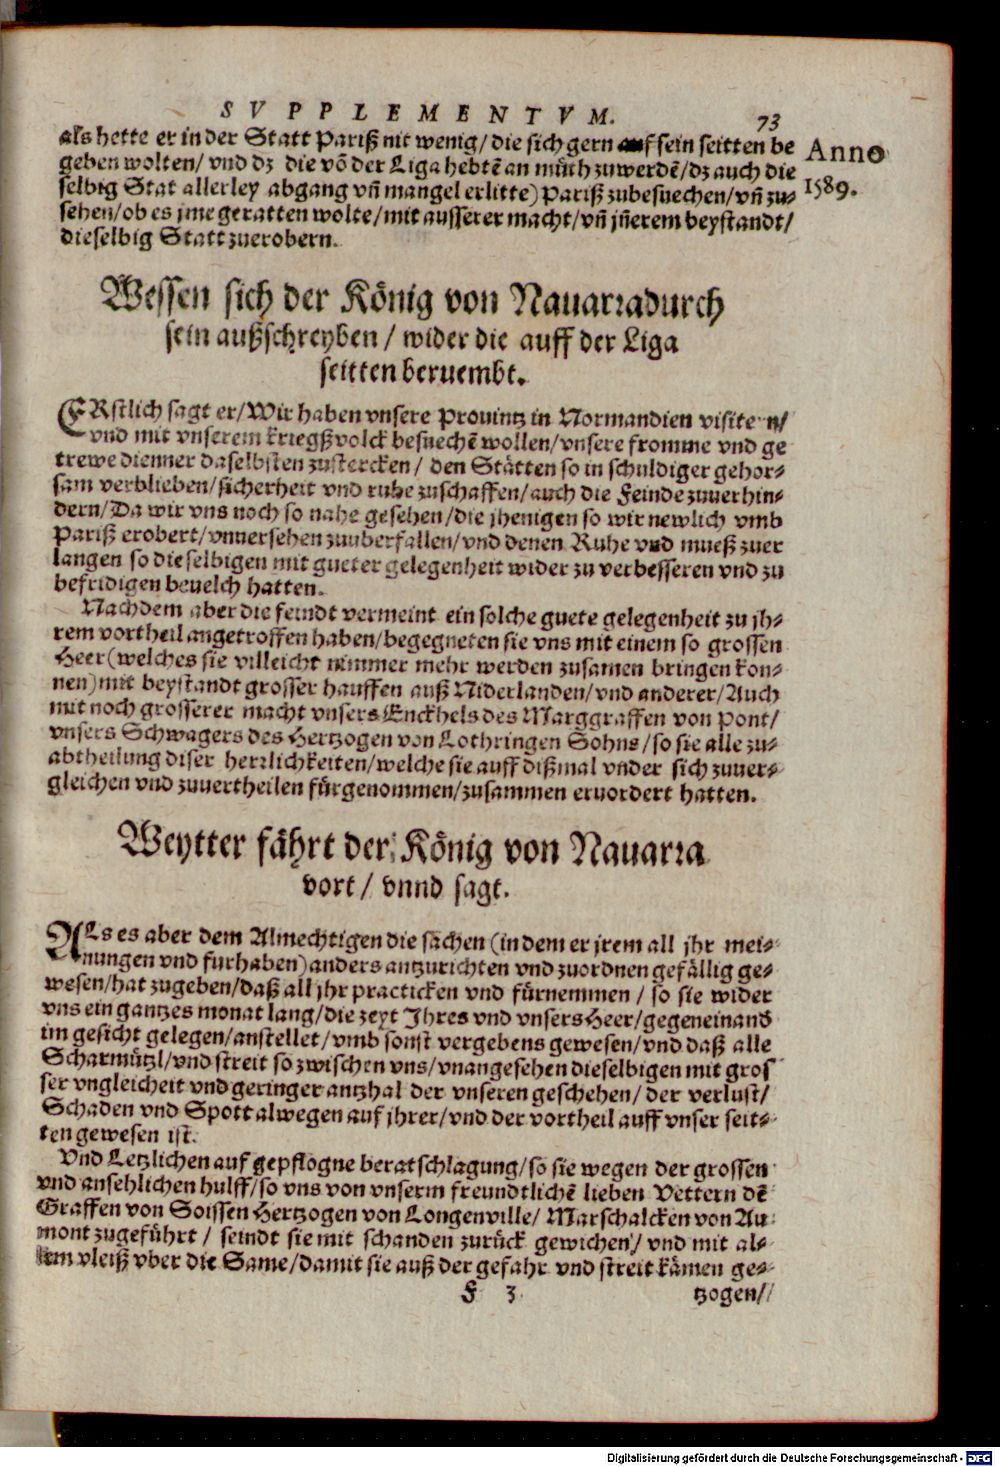 SVPPLEMENTVM. 73
als hette er in der Statt Pariß nit wenig/die sich gern auf sein seitten be
geben wolten/ vnd dz die võ der Liga hebtẽ an müth zuwerdẽ/dz auch die
selbig Stat allerley abgang vñ mangel erlitte) Pariß zubesuechen/vñ zu-
sehen/ob es jme geratten wolte/mit ausserer macht/vñ jñerem beystandt/
dieselbig Statt zuerobern.
Anno
1589.
Wessen sich der König von Nauarradurch
sein außschreyben / wider die auff der Liga
seitten beruembt.
ERstlich sagt er/Wir haben vnsere Prouintz in Normandien visite n/
vnd mit vnserem kriegßvolck besuechẽ wollen/vnsere fromme vnd ge
trewe dienner daselbsten zustercken/ den Stätten so in schuldiger gehor-
sam verblieben/sicherheit vnd ruhe zuschaffen/auch die Feinde zuuerhin-
dern/Da wir vns noch so nahe gesehen/die jhenigen so wir newlich vmb
Pariß erobert/vnuersehen zuuberfallen/vnd denen Ruhe vnd mueß zuer
langen so dieselbigen mit gueter gelegenheit wider zu verbesseren vnd zu
befridigen beuelch hatten.
Nachdem aber die feindt vermeint ein solche guete gelegenheit zu jh-
rem vortheil angetroffen haben/begegneten sie vns mit einem so grossen
Heer(welches sie villeicht nimmer mehr werden zusamen bringen kon-
nen)mit beystandt grosser hauffen auß Niderlanden/vnd anderer/Auch
mit noch grosserer macht vnsers Enckhels des Marggraffen von Pont/
vnsers Schwagers des Hertzogen von Lothringen Sohns/so sie alle zu-
abtheilung diser herrlichkeiten/welche sie auff dißmal vnder sich zuuer-
gleichen vnd zuuertheilen fürgenommen/zusammen eruordert hatten.
Weytter fährt der König von Nauarra
vort/ vnnd sagt.
ALs es aber dem Almechtigen die sachen (in dem er jrem all jhr mei-
nungen vnd furhaben)anders antzurichten vnd zuordnen gefällig ge-
wesen/hat zugeben/daß all jhr practicken vnd fürnemmen / so sie wider
vns ein gantzes monat lang/die zeyt Ihres vnd vnsers Heer/gegeneinand
im gesicht gelegen/anstellet/vmb sonst vergebens gewesen/vnd daß alle
Scharmützl/vnd streit so zwischen vns/vnangesehen dieselbigen mit gros
ser vngleicheit vnd geringer antzhal der vnseren geschehen/ der verlust/
Schaden vnd Spott alwegen auf jhrer/vnd der vortheil auff vnser seit-
ten gewesen ist.
Vnd Letzlichen auf gepflogne beratschlagung/so sie wegen der grossen
vnd ansehlichen hulff/so vns von vnserm freundtlichẽ lieben Vettern dẽ
Graffen von Soissen Hertzogen von Longenville/ Marschalcken von Au
mont zugeführt / seindt sie mit schanden zurück gewichen/ vnd mit al-
lem vleiß vber die Same/damit sie auß der gefahr vnd streit kämen ge-
F 3 tzogen/
Digitalisierung gefördert durch die Deutsche Forschungsgemeinschaft - DFG